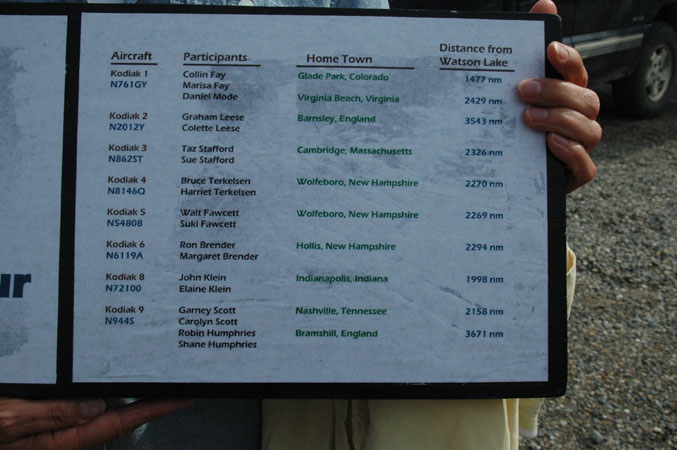 Aircraft Participants Home Town Distance from Watson Lake
Kodiak 1 Collin Fay Glade Park, Colorado 1477 nm
N761GY Marisa Fay
Daniel Mode Virginia Beach, Virginia 2429 nm
Kodiak 2 Graham Leese Barnsley, England 3543 nm
N2012Y Colette Leese
Kodiak 3 Taz Stafford Cambridge, Massachusetts 2326 nm
N862ST Sue Stafford
Kodiak 4 Bruce Terkelsen Wolfeboro, New Hampshire 2270 nm
N8146Q Harriet Terkelsen
Kodiak 5 Walt Fawcett Wolfeboro, New Hampshire 2269 nm
N54808 Suki Fawcett
Kodiak 6 Ron Brender Hollis, New Hampshire 2294 nm
N6119A Margaret Brender
Kodiak 8 John Klein Indianapolis, Indiana 1998 nm
N72100 Elaine Klein
Kodiak 9 Garney Scott Nashville, Tennessee 2158 nm
N944S Carolyn Scott
Robin Humphries Bramshill, England 3671 nm
Shane Humphries
ur